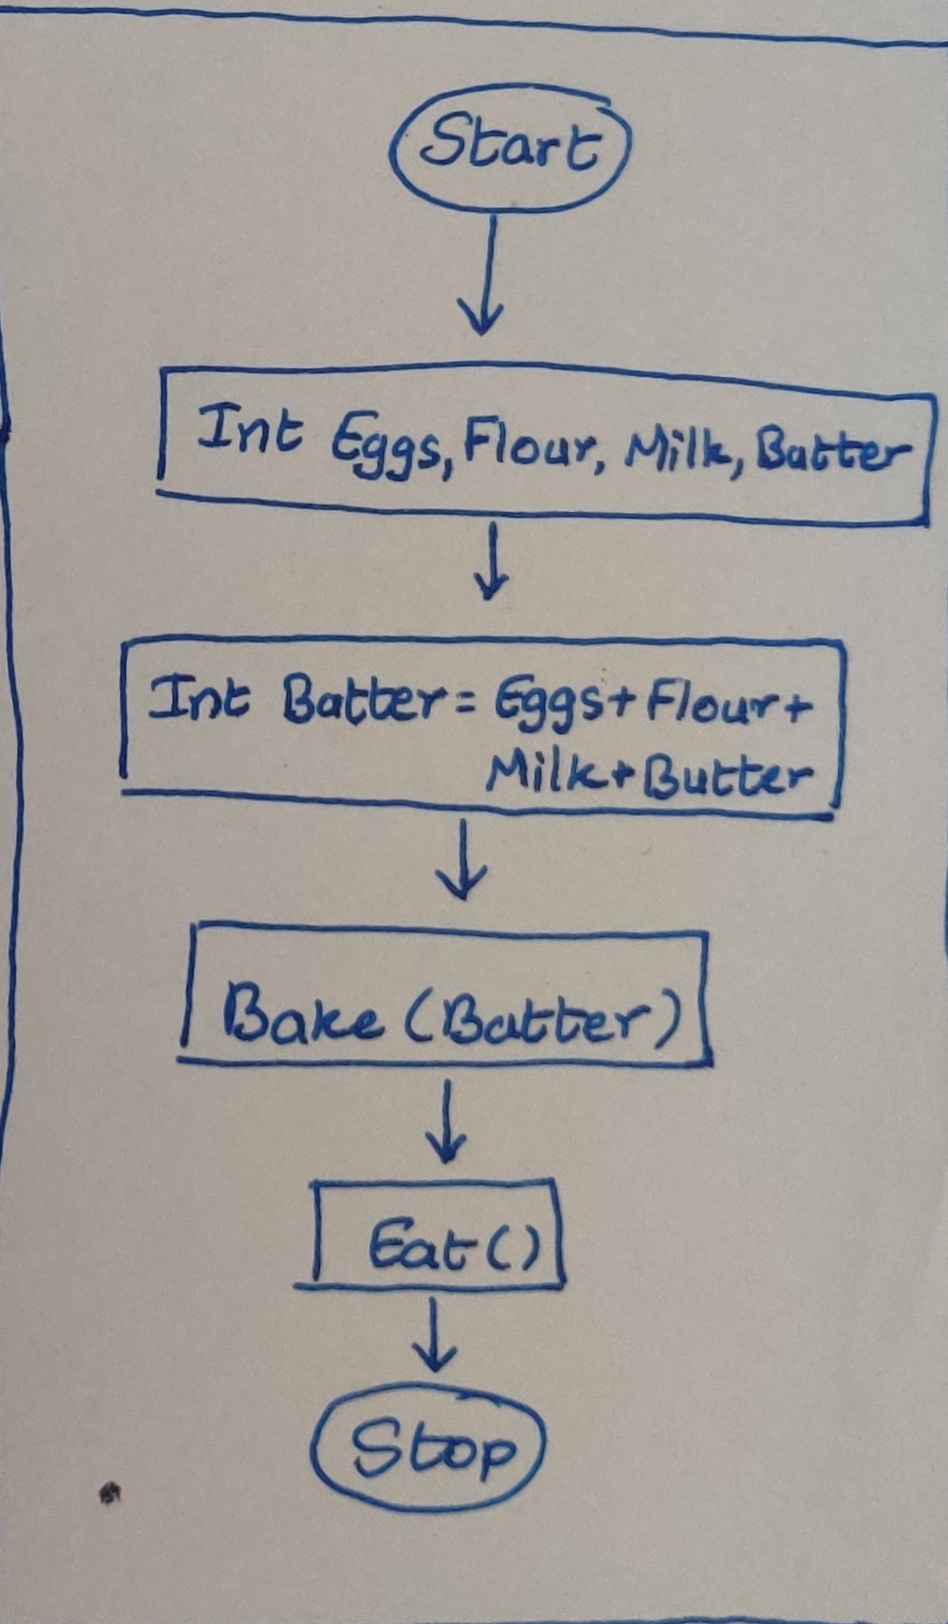 Start
Int Eggs, Flour, Milk, Batter
Int Batter = Eggs + Flour +
Milk + Butter
Bake (Batter)
Eat ()
Stop